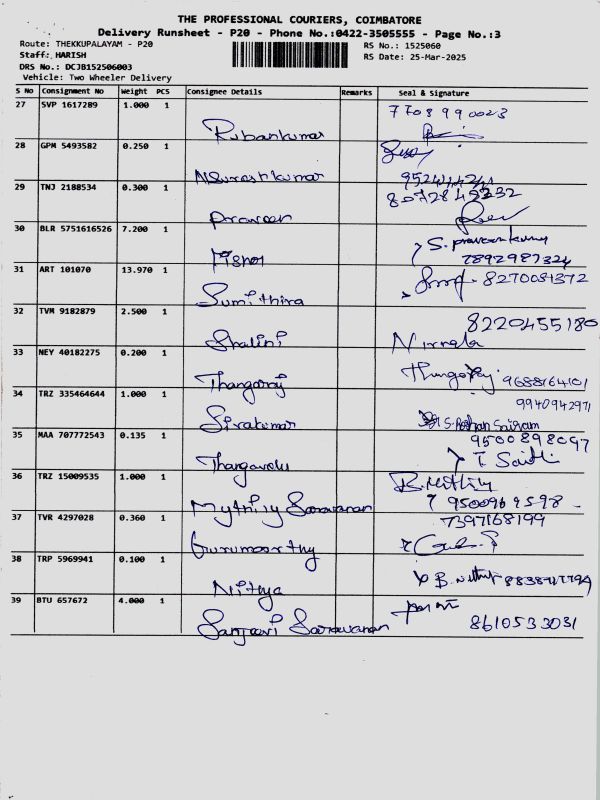 THE PROFESSIONAL COURIERS, COIMBATORE
Delivery Runsheet - P20 - Phone No.:0422-3505555 - Page No.:3
Route: THEKKUPALAYAM - P20
RS No.: 1525060
Staff: HARISH
RS Date: 25-Mar-2025
DRS No.: DCJB152506003
Vehicle: Two Wheeler Delivery
S No Consignment No Weight PCS Consignee Details Remarks Seal & Signature
27 SVP 1617289 1.000 1 Rubankumar 7708990023
28 GPM 5493582 0.250 1 N Sureshkumar
29 TNJ 2188534 0.300 1 Praveen
30 BLR 5751616526 7.200 1 S. praveen kumar
7892987324
31 ART 101070 13.970 1 Sumithira
32 TVM 9182879 2.500 1 Shalini 8220455180
Nirmala
33 NEY 40182275 0.200 1 Thangaraj
34 TRZ 335464644 1.000 1 Sivakumar
35 MAA 707772543 0.135 1 Thangavelu 9500898097
36 TRZ 15009535 1.000 1 Mythily Saravanan
37 TVR 4297028 0.360 1 Gurumoorthy 7397168199
38 TRP 5969941 0.100 1 Nithya
39 BTU 657672 4.000 1 Sanjeevi Saravanan 8610533031